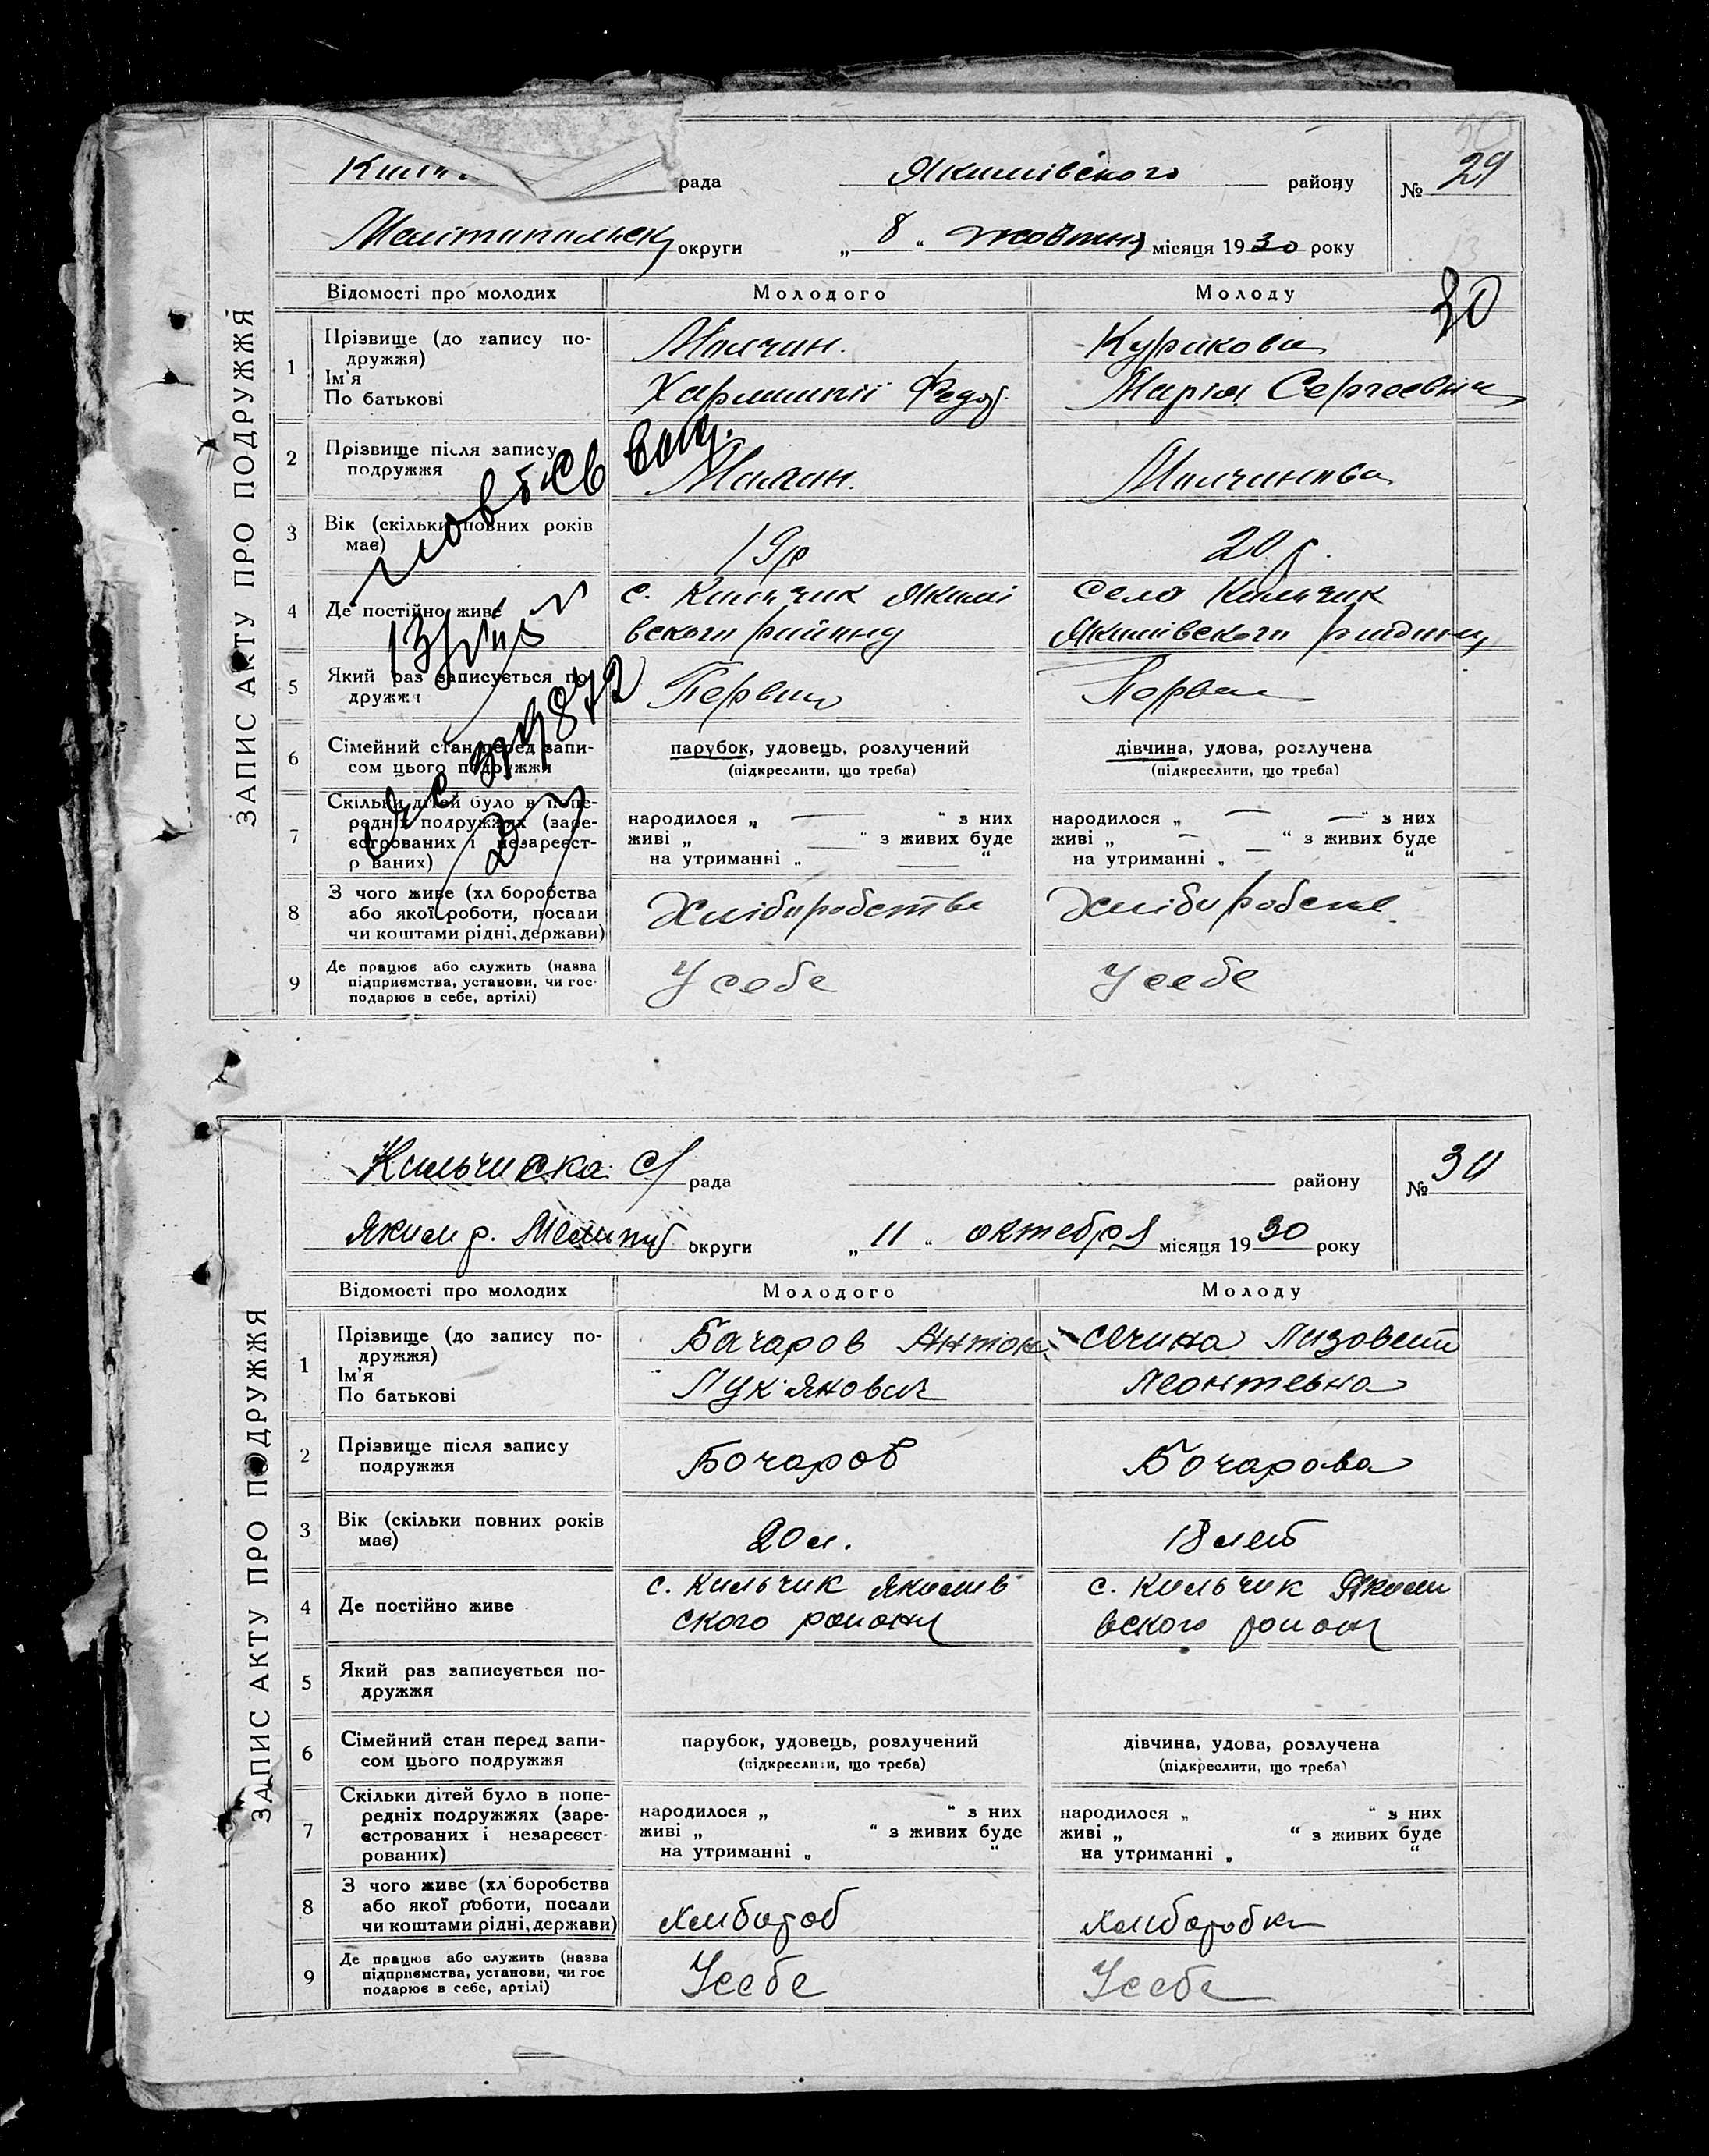 ЗАПИС АКТУ ПРО ПОДРУЖЖЯ
рада Якимівського району № 29
округи „ 8 “ жовтня місяця 1930 року
30
Відомості про молодих Молодого Молоду
1 Прізвище (до запису по-
дружжя)
Ім'я
По батькові
Малчин. Куракова
Федор. Мария Сергеевна
2 Прізвище після запису
подружжя
Малчинова
3 Вік (скільки повних років
має)
19р 20 р.
4 Де постійно живе
с. Кильчик Якимі
вського району
село Кильчик
Якимівского району
5 Який раз записується по-
дружжя
Первый Первая
6 Сімейний стан перед запи-
сом цього подружжя
парубок, удовець, розлучений
(підкреслити, що треба)
дівчина, удова, розлучена
(підкреслити, що треба)
7 Скільки дітей було в попе-
редніх подружжях (заре-
єстрованих і незареєст-
р ваних)
народилося „ — “ з них
живі „ — “ з живих буде
на утриманні „ — “
народилося „ — “ з них
живі „ — “ з живих буде
на утриманні „ — “
8 З чого живе (хл боробства
або якої роботи, посади
чи коштами рідні, держави)
Хліборобства
9 Де працює або служить (назва
підприємства, установи, чи гос-
подарює в себе, артілі)
У себе У себе
ЗАПИС АКТУ ПРО ПОДРУЖЖЯ
Кильчиска с/ рада району № 30
Яким р. округи „ 11 “ октебря місяця 1930 року
Відомості про молодих Молодого Молоду
1 Прізвище (до запису по-
дружжя)
Ім'я
По батькові
Бачаров Антон
Лук'янович
Лизовета
Леонтевна
2 Прізвище після запису
подружжя
Бочаров Бочарова
3 Вік (скільки повних років
має)
20 л. 18 лет
4 Де постійно живе
с. Кильчик Якимів
ского району
с. Кильчик Якими
вского району
5 Який раз записується по-
дружжя
6 Сімейний стан перед запи-
сом цього подружжя
парубок, удовець, розлучений
(підкреслити, що треба)
дівчина, удова, розлучена
(підкреслити, що треба)
7 Скільки дітей було в попе-
редніх подружжях (заре-
єстрованих і незареєст-
рованих)
народилося „ “ з них
живі „ “ з живих буде
на утриманні „ “
народилося „ “ з них
живі „ “ з живих буде
на утриманні „ “
8 З чого живе (хл боробства
або якої роботи, посади
чи коштами рідні, держави)
хлибороб хлиборобка
9 Де працює або служить (назва
підприємства, установи, чи гос
подарює в себе, артілі)
Усебе Усебе